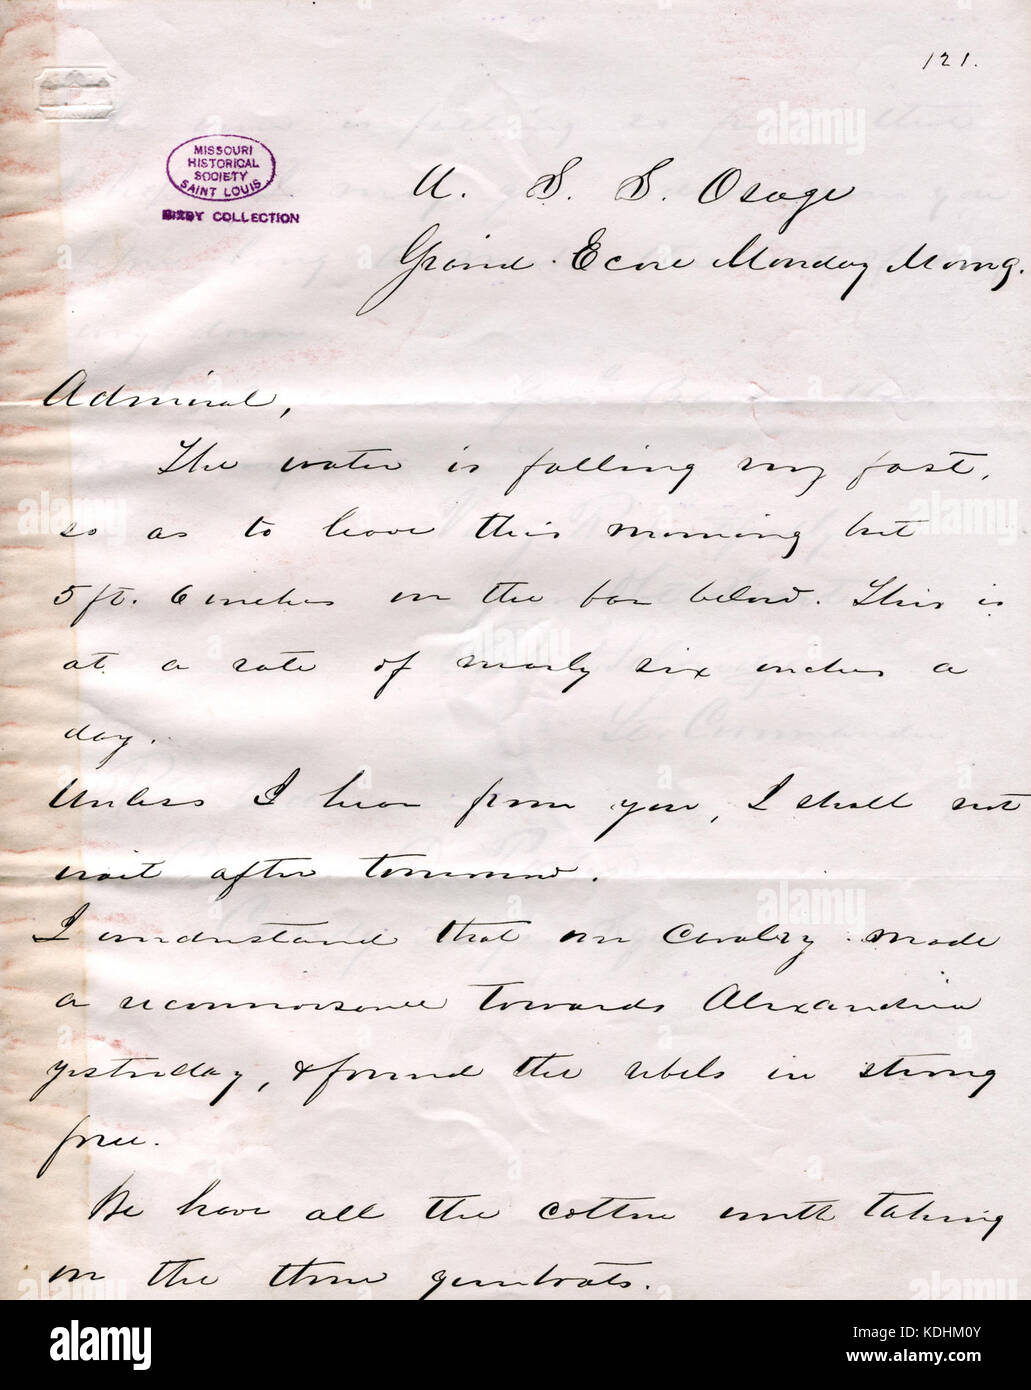 121.
MISSOURI
HISTORICAL
SOCIETY
SAINT LOUIS
BIXBY COLLECTION
U. S. S. Osage
Grand Ecore Monday Morng.
Admiral,
The water is falling very fast,
so as to leave this morning but
5 ft. 6 inches on the bar below. This is
at a rate of nearly six inches a
day.
Unless I hear from you, I shall not
wait after tomorrow.
I understand that our Cavalry made
a reconnoisance towards Alexandria
yesterday, & found the rebels in strong
force.
We have all the cotton worth taking
on the three gunboats.
alamy
Image ID: KDHM0Y
www.alamy.com